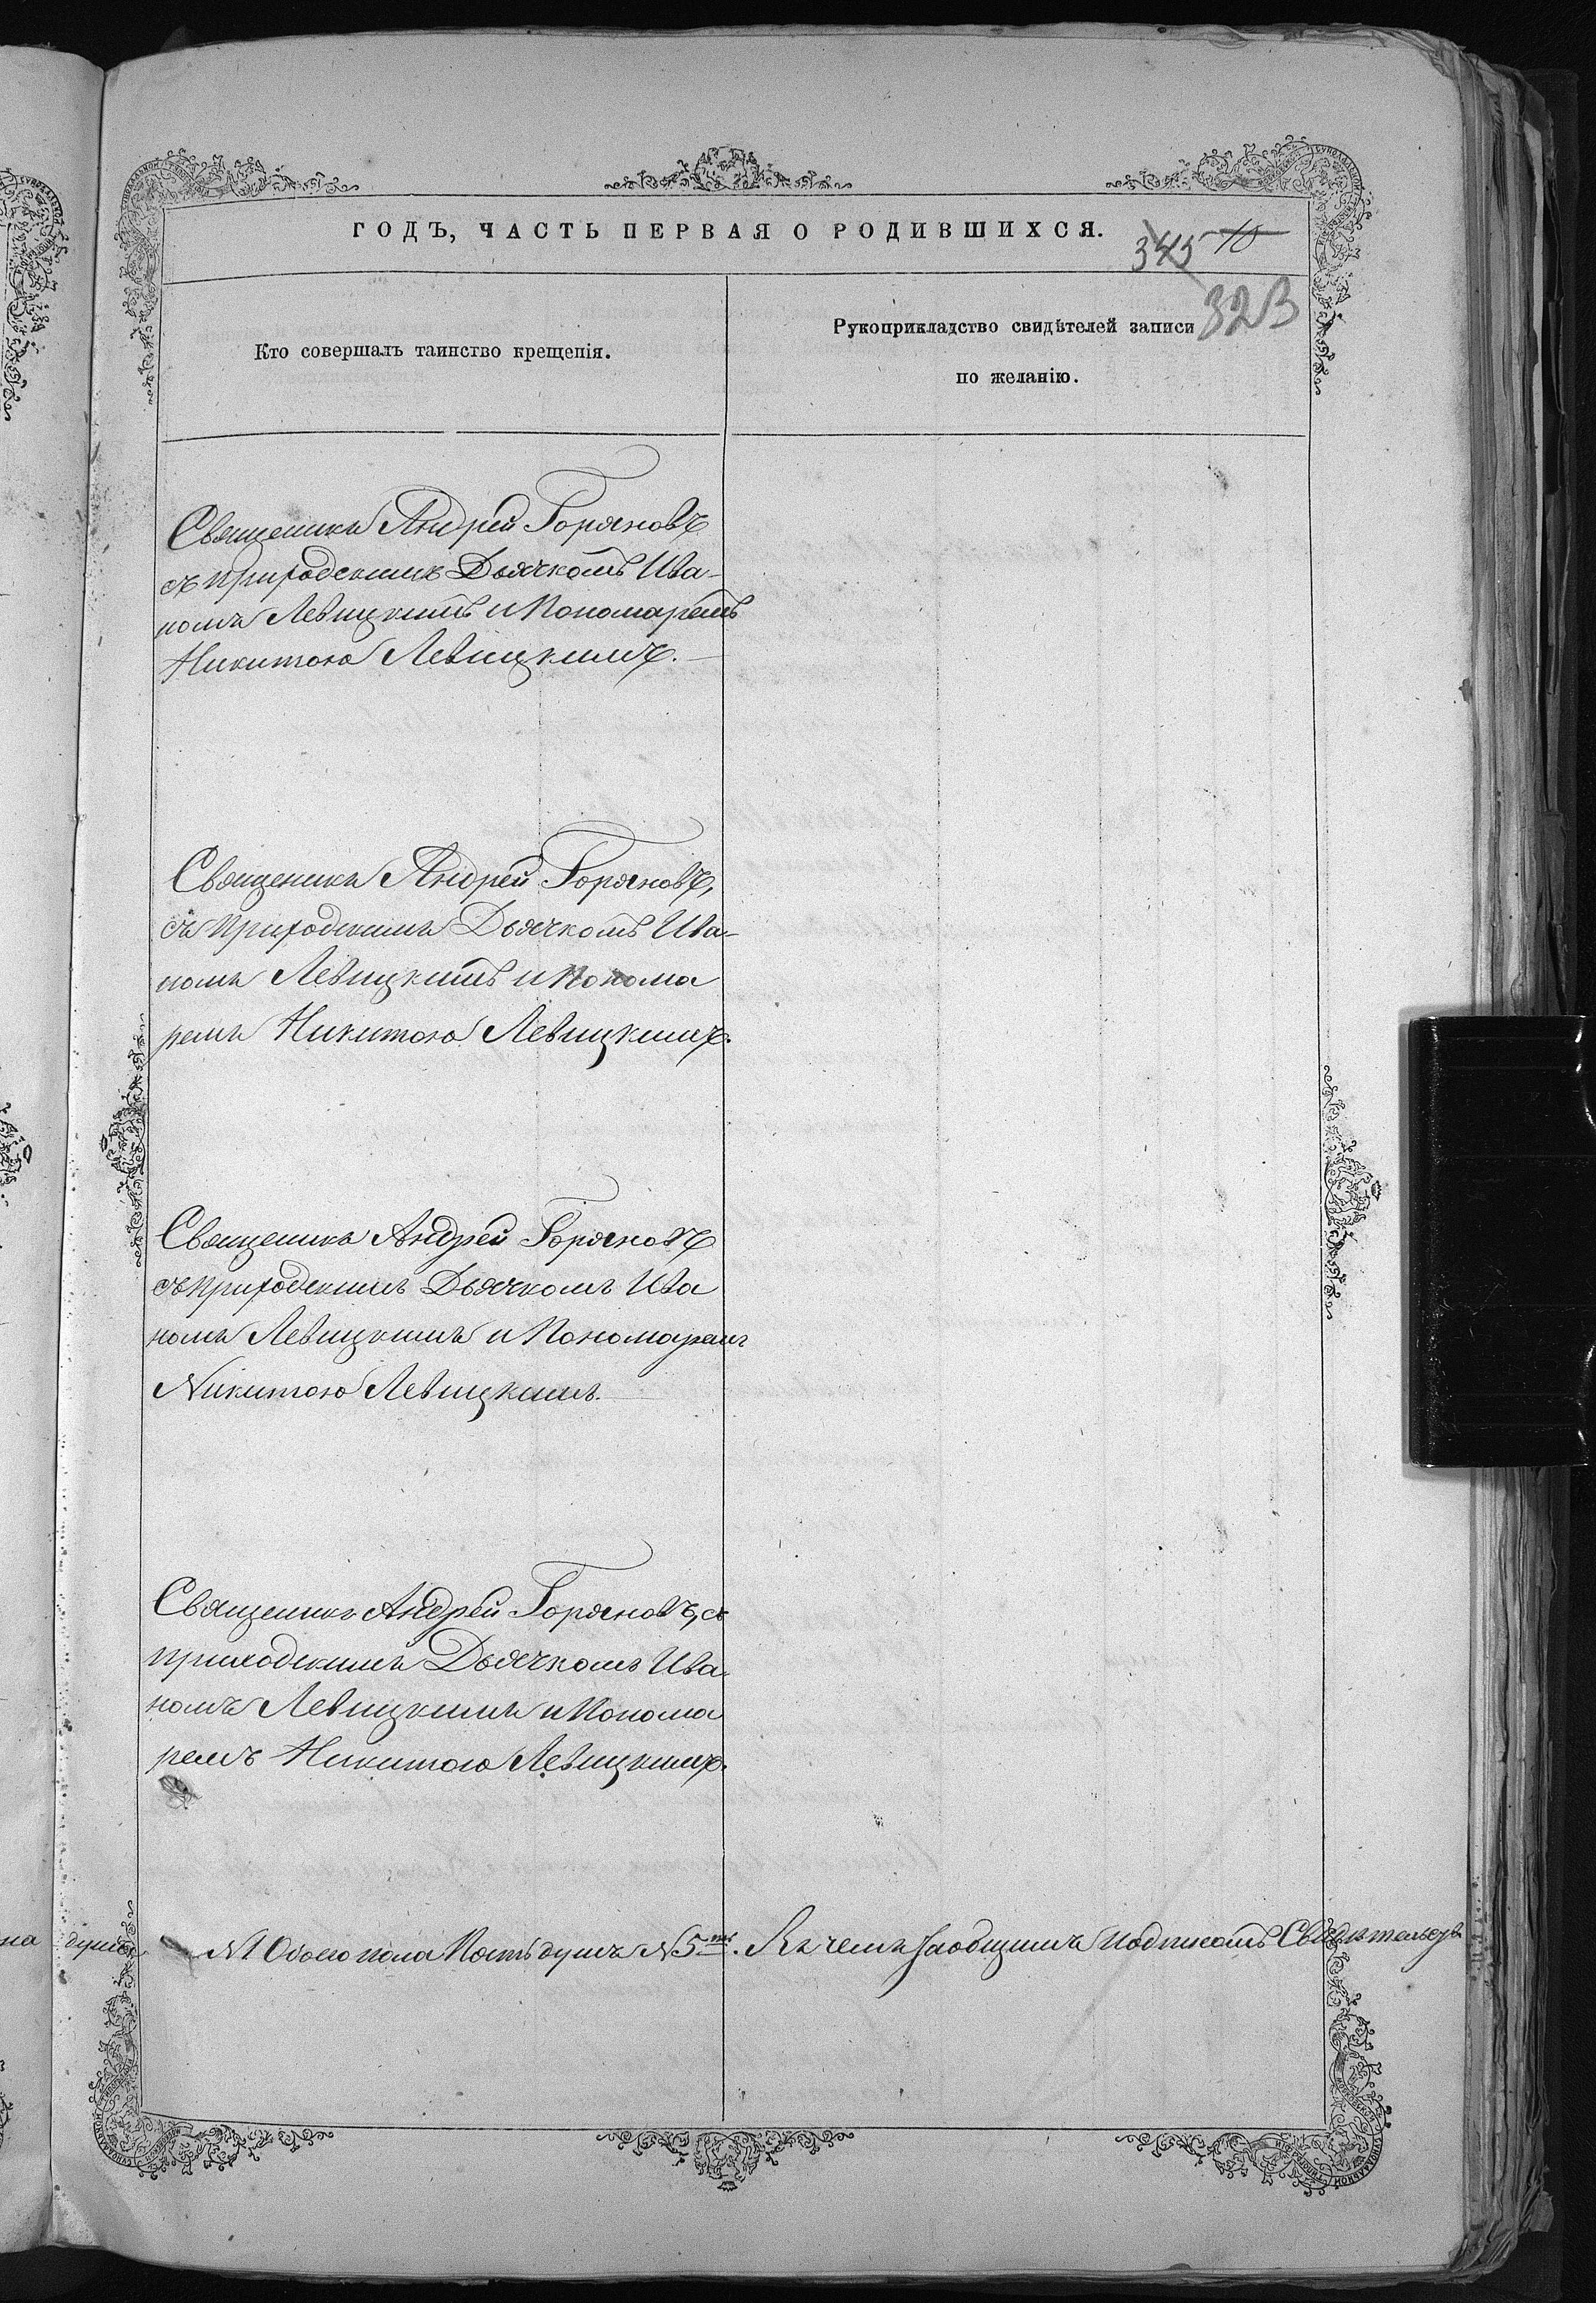 ГОДЪ, ЧАСТЬ ПЕРВАЯ О РОДИВШИХСЯ.
345 10
323
Кто совершалъ таинство крещенія.
Рукоприкладство свидѣтелей записи
по желанію.
Священикъ Андрей Горяновъ
съ приходскимъ Дьячкомъ Ива-
номъ Левицкимъ и Пономаремъ
Никитою Левицкимъ.
Священикъ Андрей Горяновъ,
съ приходскимъ Дьячкомъ Ива-
номъ Левицкимъ и Понома
ремъ Никитою Левицкимъ.
Священикъ Андрей Горяновъ
съ приходскимъ Дьячкомъ Ива
номъ Левицкимъ и Пономаремъ
Никитою Левицкимъ.
Священикъ Андрей Горяновъ, съ
приходскимъ Дьячкомъ Ива
номъ Левицкимъ и Понома
ремъ Никитою Левицкимъ.
на душа
Обоего пола Пять душъ №5. Въ чемъ подписомъ